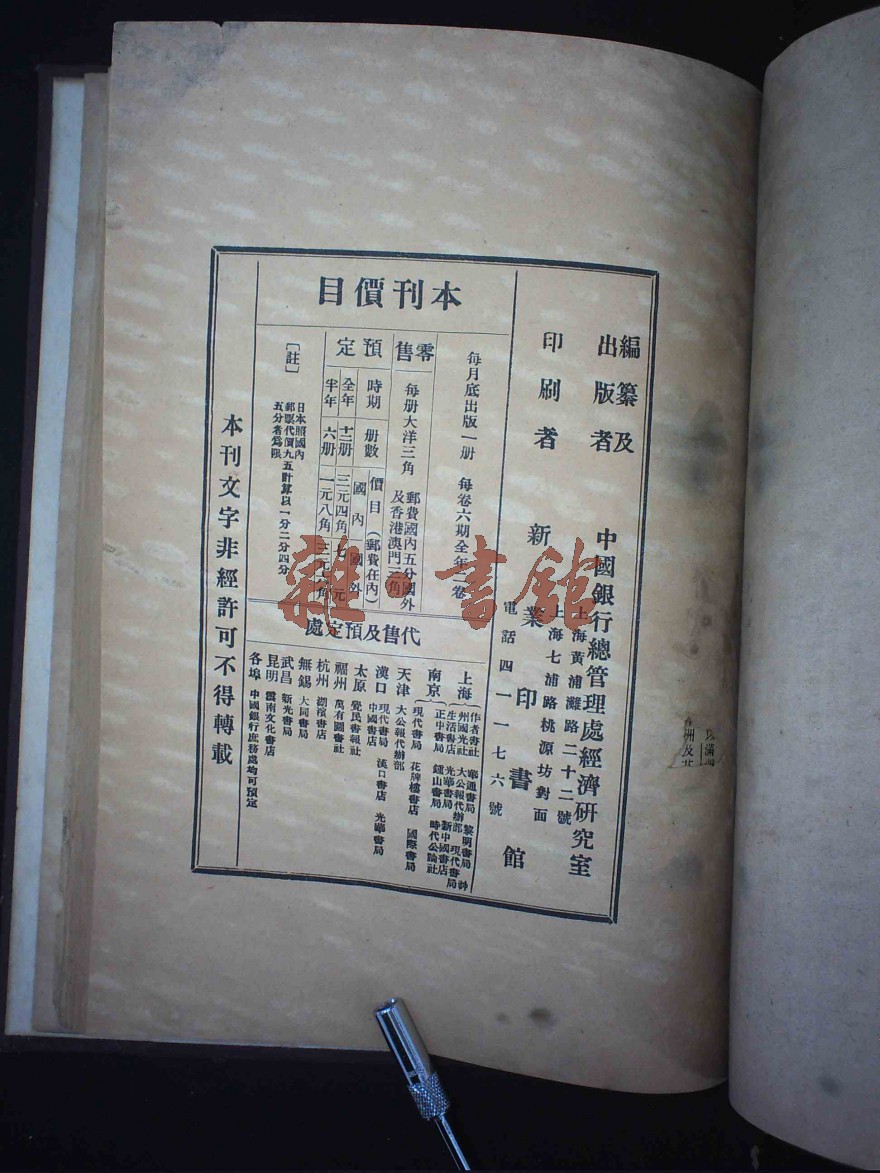 編纂及
出版者
中國銀行總管理處經濟研究室
上海黃浦灘路二十二號
印刷者
新業印書館
上海七浦路桃源坊對面
電話四一一七六號
本刊價目
每月底出版一册 每卷六期全年二卷
零售
每册大洋三角
郵費國內五分國外
及香港澳門三角
預定
時期 册數 價目(郵費在內)
國內 國外
全年 十二册 三元四角 七元
半年 六册 一元八角
〔註〕
日本照國內
郵票代價九五計算以一分二分四分
五分者爲限
代售及預定處
上海
作者書社 華通書局 黎明書局
州國光社 大公報代辦部 現代書局
生活書店 光華書局 新中國書店
南京
正中書局 鍾山書局 時代公論社
現代書局 花牌樓書店 國際書局
天津 大公報代辦部
漢口 現代書局 漢口書店 光華書局
中國書店
太原 覺民書報社
福州 萬有圖書社
杭州 湖濱書店
無錫 大同書局
武昌 新光書局
昆明 雲南文化書店
各埠 中國銀行庶務處均可預定
本刊文字非經許可不得轉載
雜·書館
洲及北